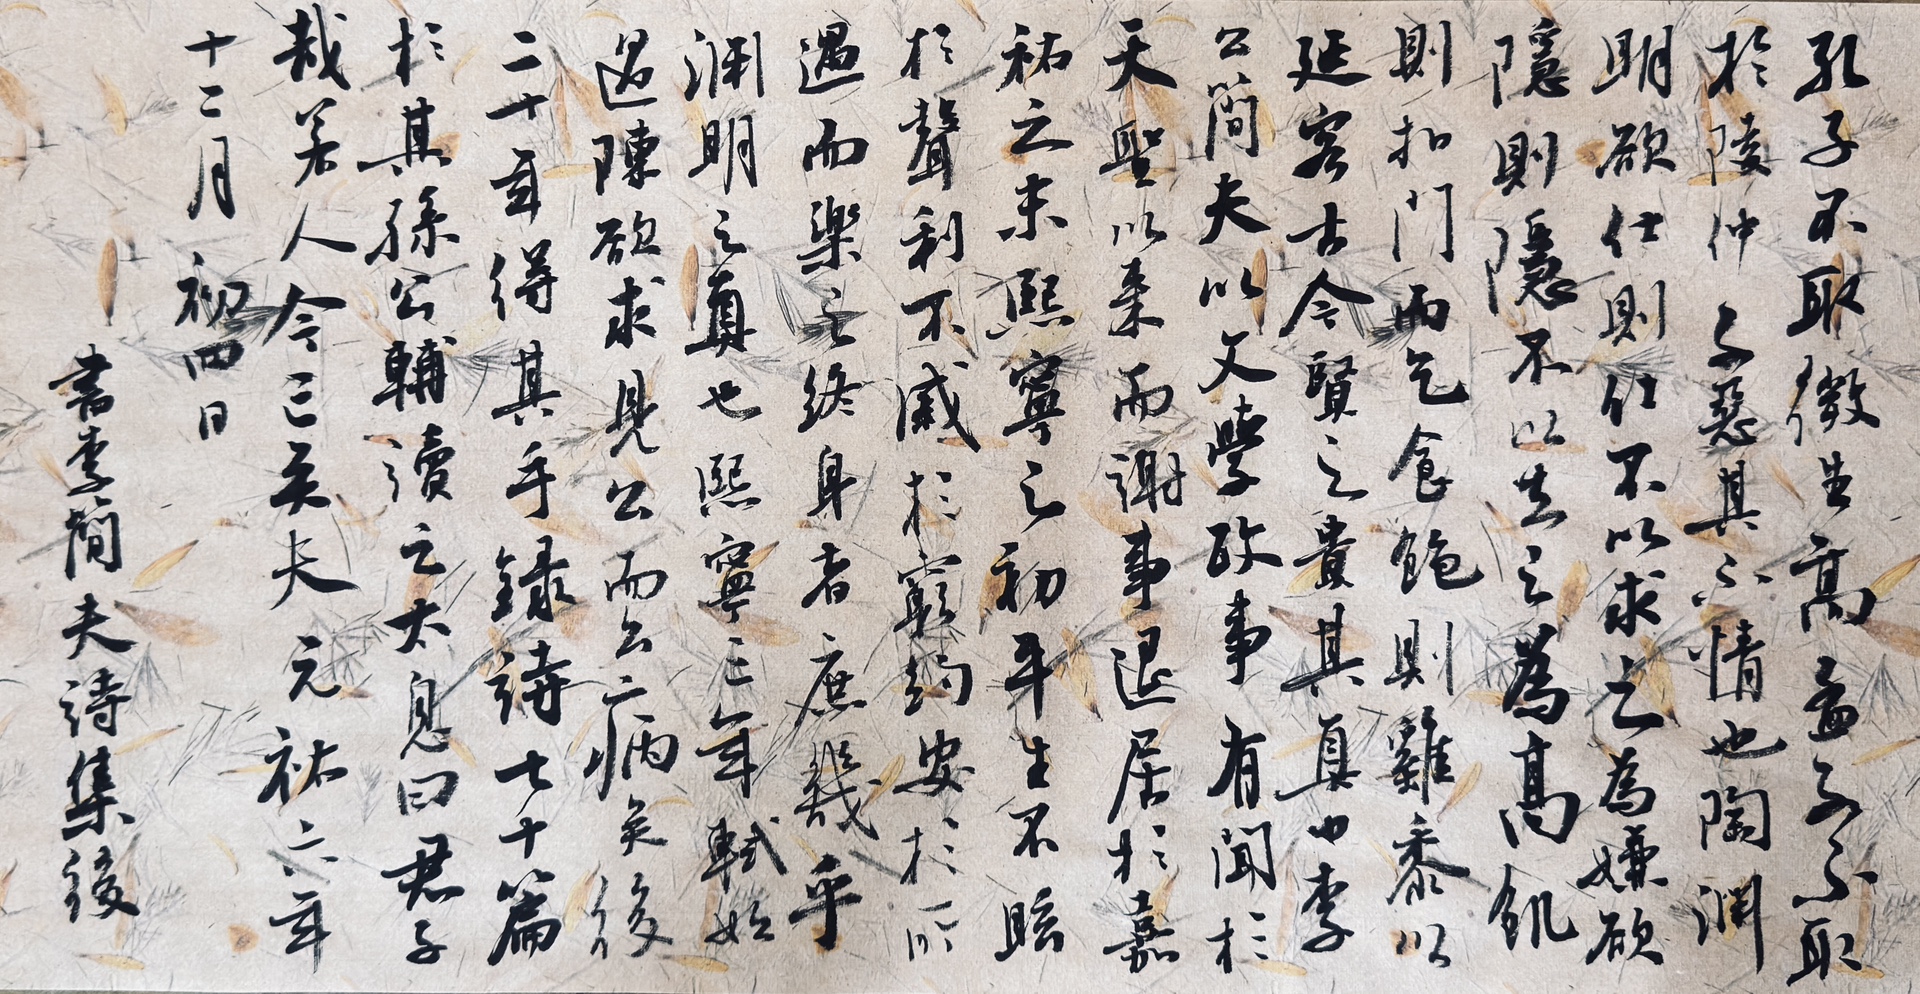 孔子不取微生高孟子不取
於陵仲子惡其不情也陶渊
明欲仕則仕不以求之為嫌欲
隱則隱不以去之為高飢
則扣門而乞食飽則雞黍以
延客古今賢之貴其真也李
公簡夫以文學政事有聞於
天聖以来而謝事退居於嘉
祐之末熙寧之初平生不眩
於聲利不戚於窮約安於所
遇而樂之終身者庶幾乎
渊明之真也熙寧三年軾始
過陳欲求見公而公病矣後
二十年得其手録詩七十篇
於其孫公輔讀之太息曰君子
哉若人今亡矣夫元祐六年
十二月初四日
書李簡夫詩集後